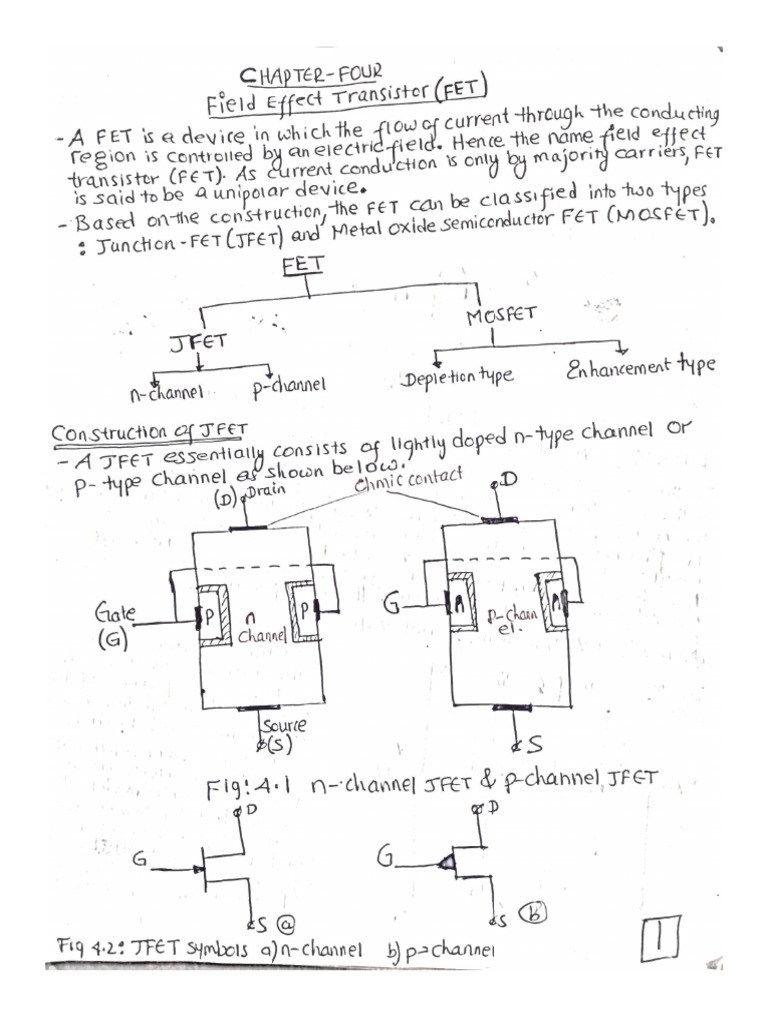 CHAPTER-FOUR
Field Effect Transistor (FET)
- A FET is a device in which the flow of current through the conducting
region is controlled by an electric field. Hence the name field effect
transistor (FET). As current conduction is only by majority carriers, FET
is said to be a unipolar device.
- Based on the construction, the FET can be classified into two types
: Junction-FET (JFET) and Metal oxide semiconductor FET (MOSFET).
FET
JFET
MOSFET
n-channel
p-channel
Depletion type
Enhancement type
Construction of JFET
- A JFET essentially consists of lightly doped n-type channel or
p-type channel as shown below.
(D) Drain
Ohmic contact
D
Gate
(G)
P
n
channel
P
G
n
p-chann
el.
n
Source
(S)
S
Fig: 4.1 n-channel JFET & p-channel JFET
D
G
S
a
D
G
S
b
Fig 4.2: JFET symbols a) n-channel b) p-channel
1